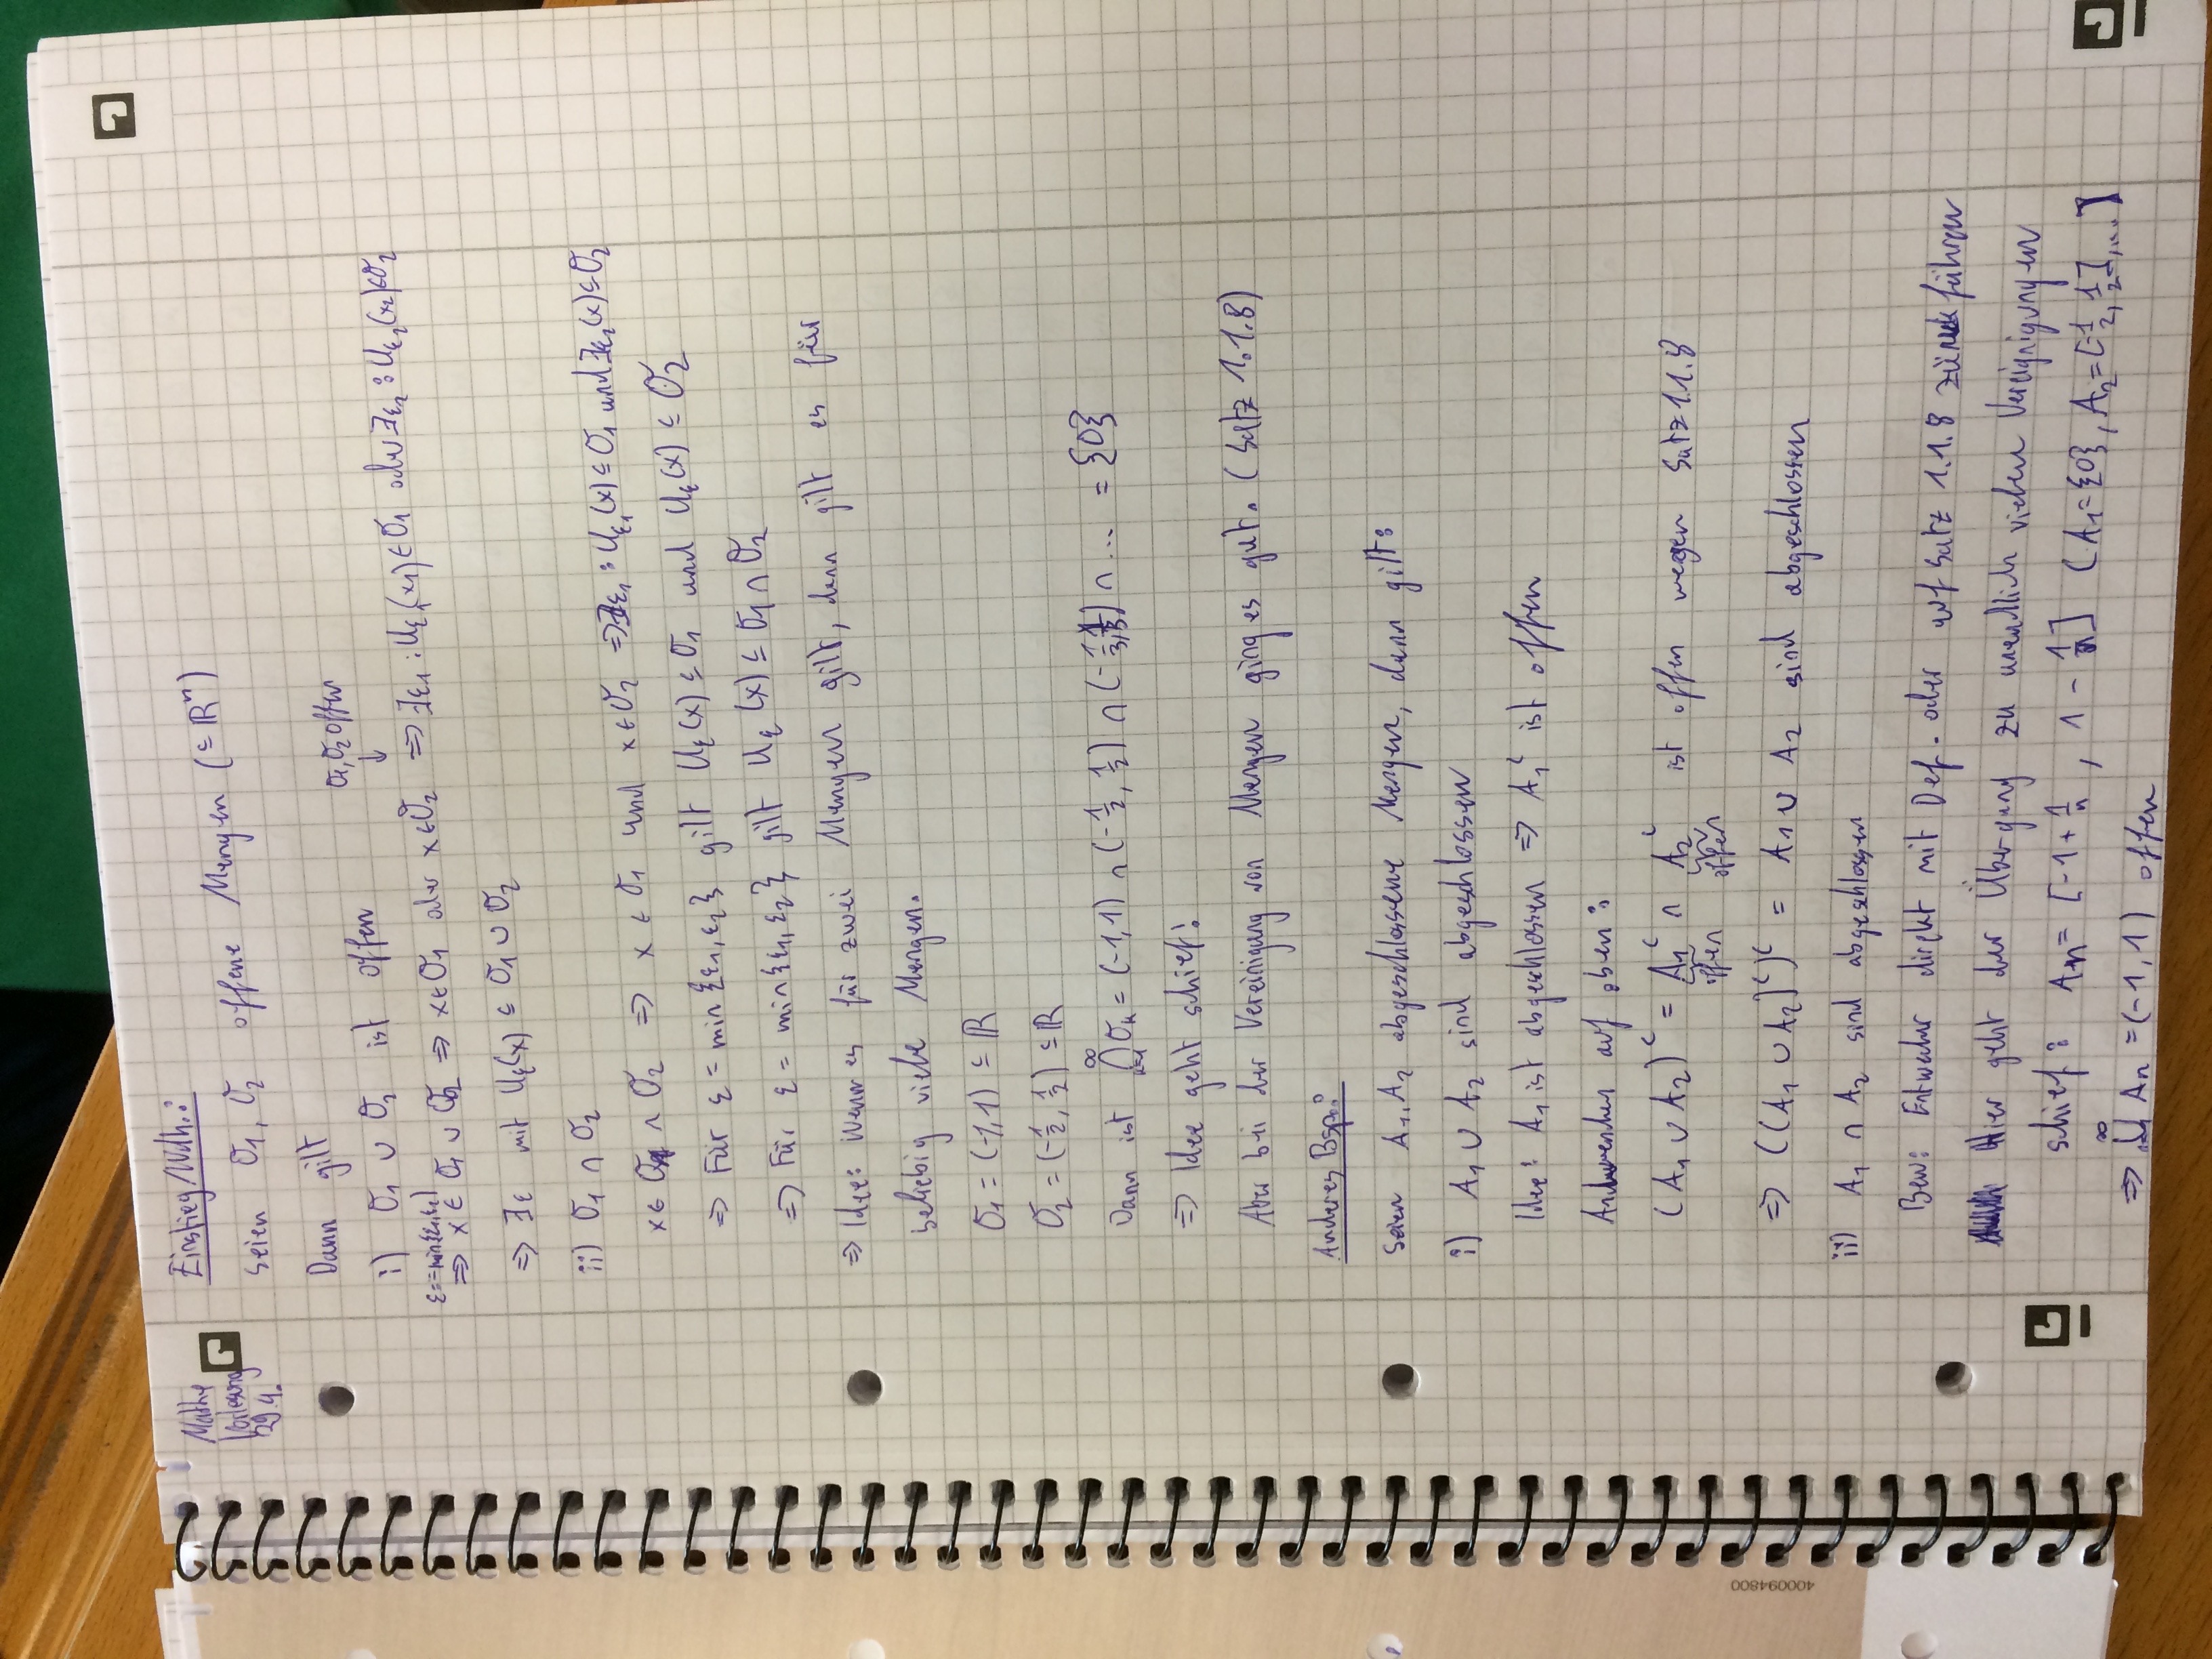 Mathe
Vorlesung
29.4.
Einstieg/Wdh.:
Seien O₁, O₂ offene Mengen (⊆ ℝⁿ)
Dann gilt
O₁, O₂ offen
↓
i) O₁ ∪ O₂ ist offen
ε:=min{ε₁,ε₂}
⇒ x ∈ O₁ ∪ O₂ ⇒ x∈O₁ oder x∈O₂ ⇒ ∃ε₁ : U_ε₁(x₁)∈O₁ oder ∃ε₂ : U_ε₂(x₂)∈O₂
⇒ ∃ε mit U_ε(x) ⊆ O₁ ∪ O₂
ii) O₁ ∩ O₂
x ∈ O₁ ∩ O₂ ⇒ x ∈ O₁ und x ∈ O₂ ⇒ ∃ε₁ : U_ε₁(x) ⊆ O₁ und ∃ε₂(x) ⊆ O₂
⇒ Für ε = min{ε₁, ε₂} gilt U_ε(x) ⊆ O₁ und U_ε(x) ⊆ O₂
⇒ Für ε = min{ε₁, ε₂} gilt U_ε(x) ⊆ O₁ ∩ O₂
⇒ Idee: Wenn es für zwei Mengen gilt, dann gilt es für
beliebig viele Mengen.
O₁ = (-1,1) ⊆ ℝ
O₂ = (-1/2, 1/2) ⊆ ℝ
Dann ist ∞ ⋂ k=1 O_k = (-1,1) ∩ (-1/2, 1/2) ∩ (-1/3, 1/3) ∩ ... = {0}
⇒ Idee geht schief!
Aber bei der Vereinigung von Mengen ging es gut. (Satz 1.1.8)
Anderes Bsp.:
Seien A₁, A₂ abgeschlossene Mengen, dann gilt:
i) A₁ ∪ A₂ sind abgeschlossen
Idee: A₁ ist abgeschlossen ⇒ A₁ᶜ ist offen
Anwenden auf oben:
(A₁ ∪ A₂)ᶜ = A₁ᶜ ∩ A₂ᶜ ist offen wegen Satz 1.1.8
offen offen
⇒ ((A₁ ∪ A₂)ᶜ)ᶜ = A₁ ∪ A₂ sind abgeschlossen
ii) A₁ ∩ A₂ sind abgeschlossen
Bew: Entweder direkt mit Def. oder auf Satz 1.1.8 zurück führen
Hier geht der Übergang zu unendlich vielen Vereignigungen
schief: Aₙ = [-1 + 1/n , 1 - 1/n] (A₁={0}, A₂=[-1/2, 1/2],...)
⇒ ∞ ⋃ Aₙ = (-1,1) offen
400094800